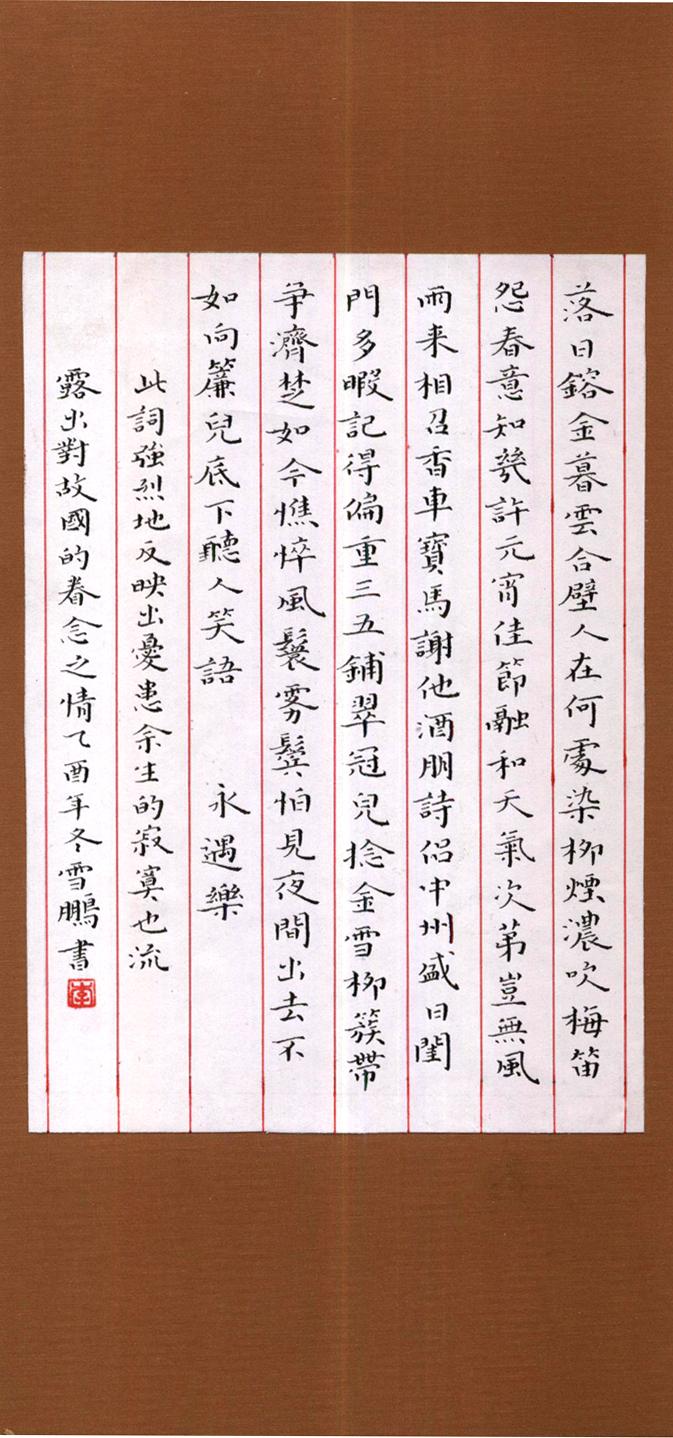 落日鎔金暮雲合壁人在何處染柳煙濃吹梅笛
怨春意知幾許元宵佳節融和天氣次第豈無風
雨来相召香車寶馬謝他酒朋詩侶中州盛日閨
門多暇記得偏重三五鋪翠冠兒捻金雪柳簇帶
争濟楚如今憔悴風鬟雾鬓怕見夜間出去不
如向簾兒底下聽人笑語 永遇樂
此詞強烈地反映出憂患余生的寂寞也流
露出對故國的眷念之情乙酉年冬雪鵬書
李